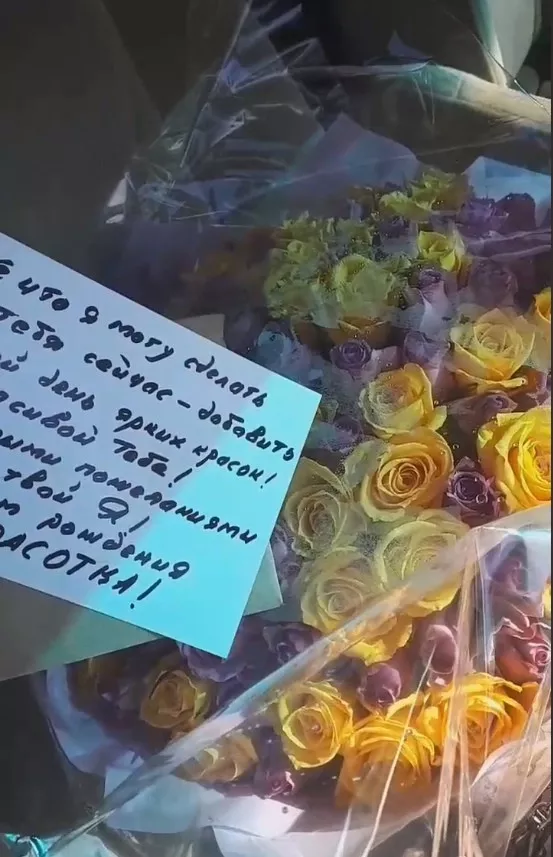 что я могу сделать
тебя сейчас - добавить
день ярких красок!
Тебе!
пожеланиями
твой Я!
рождения
КРАСОТКА!